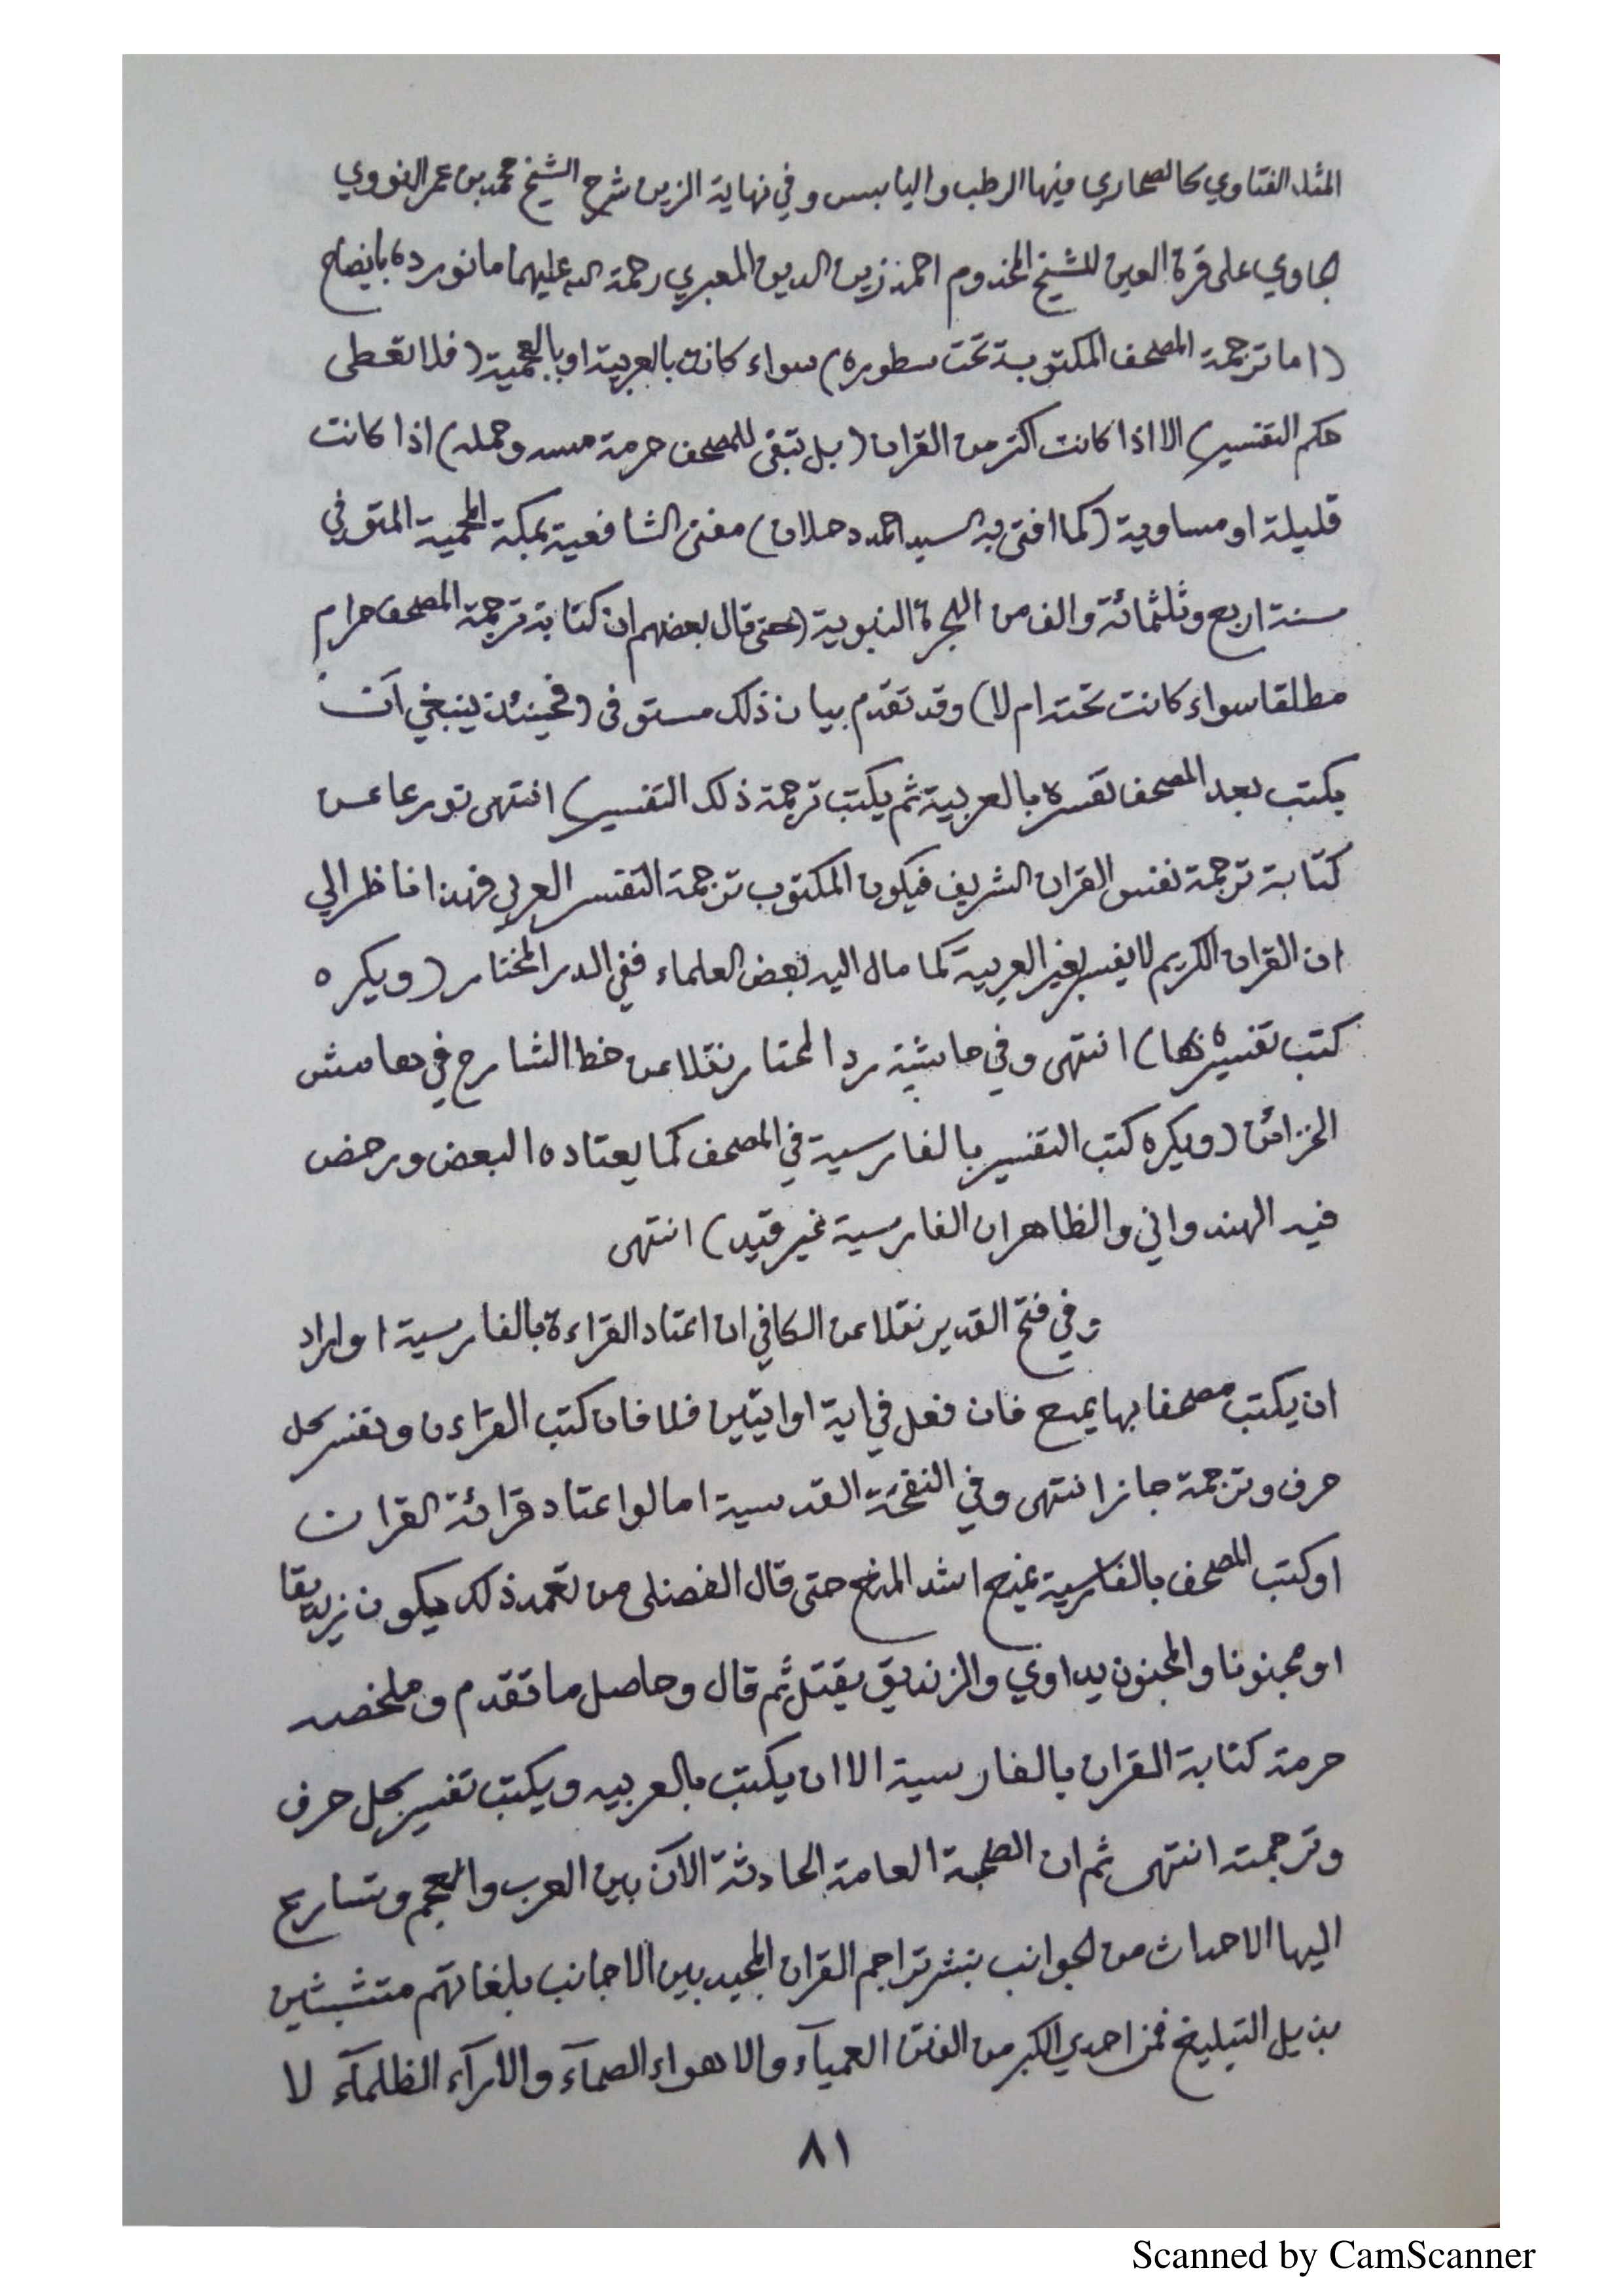 المثله الفتاوي كالصحاري فيها الرطب واليابس وفي نهاية الزين شرح الشيخ محمد بن عمر النووي
الجاوي على قرة العين للشيخ المخدوم احمد زين الدين المعبري رحمة الله عليهما ما نورده بايضاح
(اما ترجمة المصحف المكتوبة تحت سطوره) سواء كانت بالعربية او بالعجمية (فلا تعطى
حكم التفسير) الا اذا كانت اكثر من القران (بل تبقى للمصحف حرمة مسه وحمله) اذا كانت
قليلة او مساوية (كما افتى به السيد احمد دحلان) مفتى الشافعية بمكة المحمية المتوفي
سنة اربع وثلثمائة والف من الهجرة النبوية (حتى قال بعضهم ان كتابة ترجمة المصحف حرام
مطلقا سواء كانت تحته ام لا) وقد تقدم بيان ذلك مستوفى (فحينئذ ينبغي أن
يكتب بعد المصحف تفسره بالعربية ثم يكتب ترجمة ذلك التفسير) انتهى تورعا عن
كتابة ترجمة نفس القران الشريف فيكون المكتوب ترجمة التفسر العربي فهذا ناظر الي
ان القران الكريم لا يفسر بغير العربية كما مال اليه بعض العلماء ففي الدر المختار (ويكره
كتب تفسيره بها) انتهى وفي حاشية رد المحتار نقلا عن خط الشارح في هامش
الخزائن (ويكره كتب التفسير بالفارسية في المصحف كما يعتاده البعض ورخص
فيه الهندواني والظاهر ان الفارسية غير قيد) انتهى
وفي فتح القدير نقلا عن الكافي ان اعتاد القراءة بالفارسية او اراد
ان يكتب مصحفا بها يمنع فان فعل في اية او ايتين فلا فان كتب القراءن وتفسر كل
حرف وترجمة جاز انتهى وفي النفحة القدسية اما لو اعتاد قرائة القران
او كتب المصحف بالفارسية يمنع اشد المنع حتى قال الفضلى من تعمد ذلك يكون زنديقا
او مجنونا والمجنون يداوي والزنديق يقتل ثم قال وحاصل ما تقدم وملخصه
حرمة كتابة القران بالفارسية الا ان يكتب بالعربيه ويكتب تفسير كل حرف
وترجمته انتهى ثم ان الطمة العامة الحادثة الآن بين العرب والعجم وتسارع
اليها الاحداث من الجوانب بنشر تراجم القران المجيد بين الاجانب بلغاتهم متشبثين
بذيل التبليغ فمن احدي الكبر من الفتن العميآء والاهواء الصمآء والارآء الظلمآء لا
٨١
Scanned by CamScanner